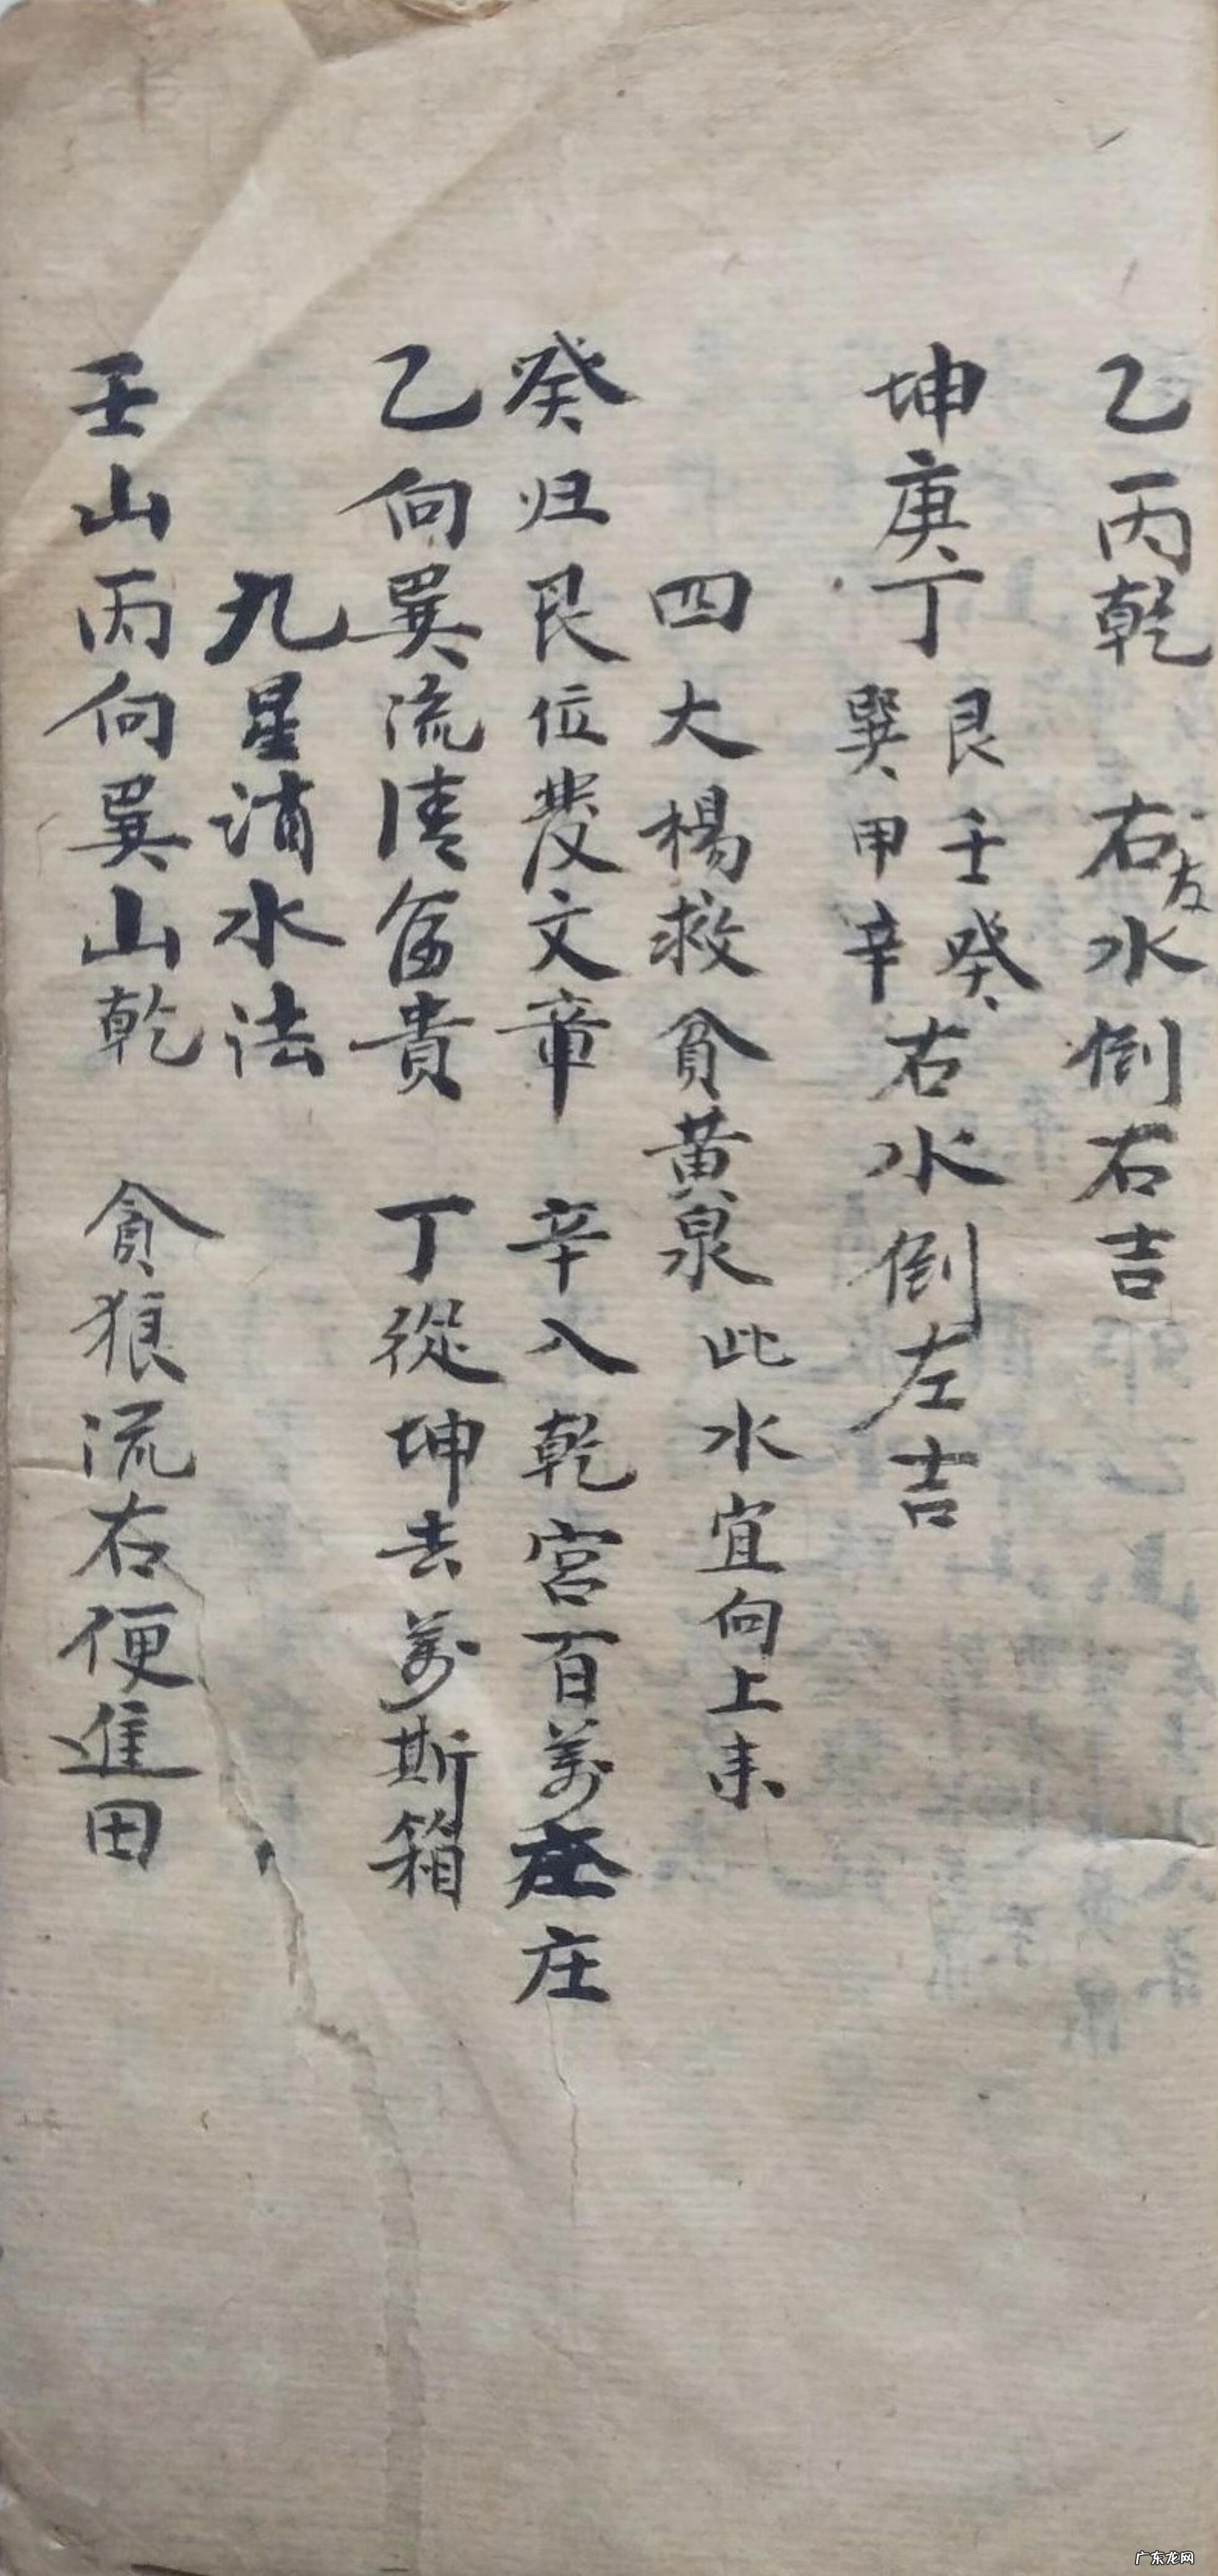 乙丙乾 右左水倒右吉
坤庚丁 艮壬癸 巽甲辛 右水倒左吉
四大楊救貧黃泉 此水宜向上来
癸归艮位發文章 辛入乾宮百萬庄
乙向巽流清富貴 丁從坤去萬斯箱
九星消水法
壬山丙向巽山乾 貪狼流右便進田
广东龙网